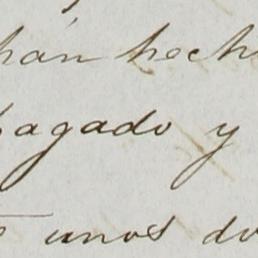 hán hech
pagado y
unos do